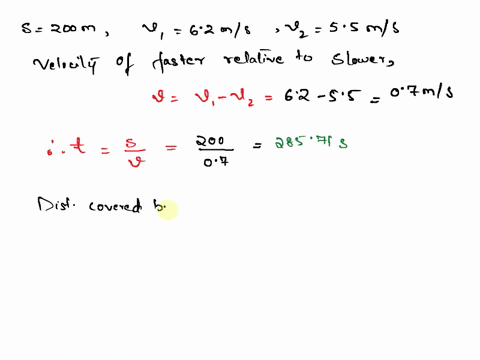 S = 200 m, v₁ = 6.2 m/s, v₂ = 5.5 m/s
Velocity of faster relative to slower,
v = v₁ - v₂ = 6.2 - 5.5 = 0.7 m/s
∴ t = s/v = 200/0.7 = 285.71 s
Dist. covered b